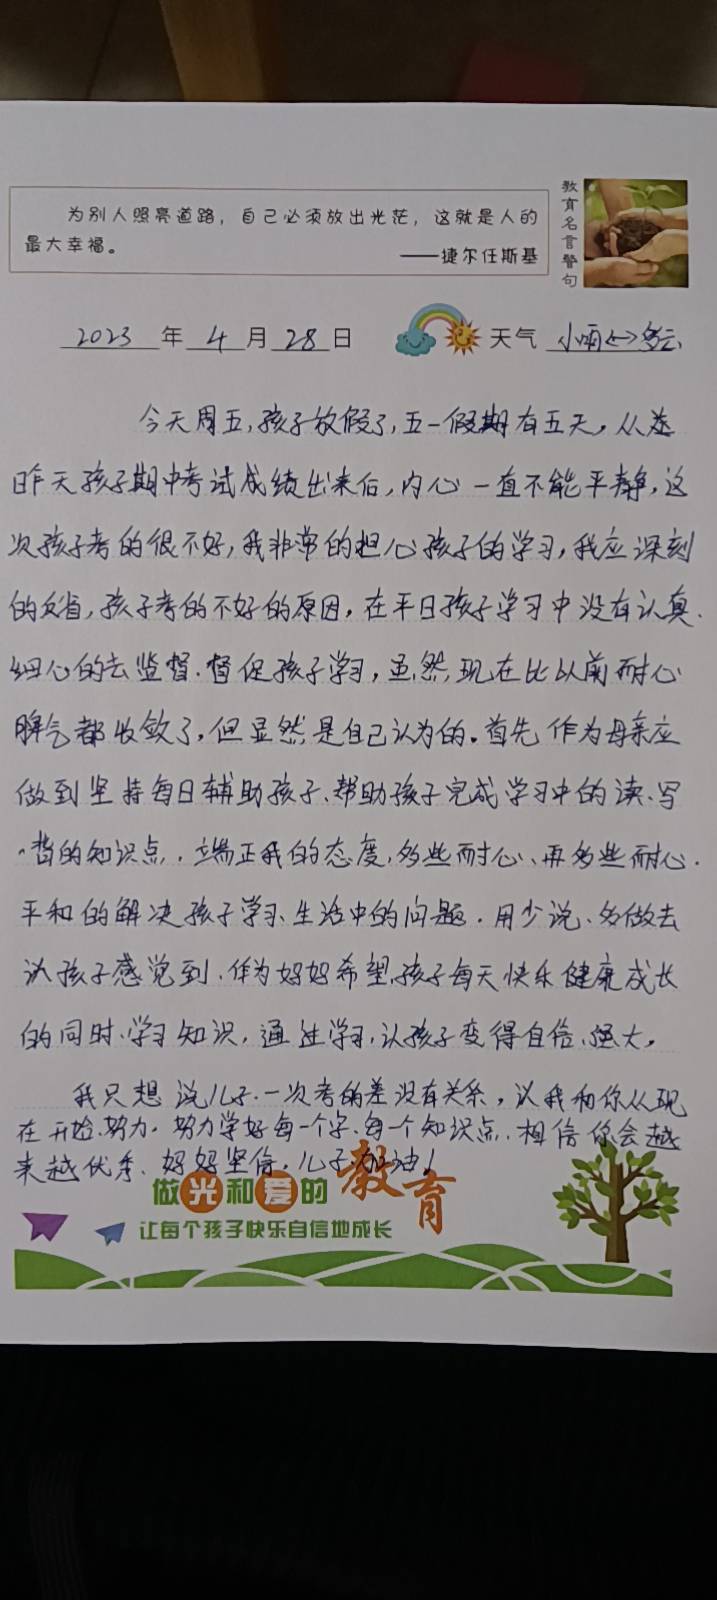 为别人照亮道路，自己必须放出光茫，这就是人的
最大幸福。
——捷尔任斯基
教育名言警句
2023年4月28日 天气 小雨<->多云
今天周五,孩子放假了,五一假期有五天。从
昨天孩子期中考试成绩出来后,内心一直不能平静,这
次孩子考的很不好,我非常的担心孩子的学习,我应深刻
的反省,孩子考的不好的原因,在平日孩子学习中没有认真.
细心的去监督.督促孩子学习,虽然现在比以前耐心
脾气都收敛了,但显然是自己认为的。首先作为母亲应
做到坚持每日辅助孩子、帮助孩子完成学习中的读、写
、背的知识点.端正我的态度,多些耐心、再多些耐心.
平和的解决孩子学习、生活中的问题.用少说、多做去
让孩子感觉到.作为妈妈希望孩子每天快乐健康成长
的同时、学习知识,通过学习,让孩子变得自信、强大。
我只想说儿子.一次考的差没有关系,让我和你从现
在开始.努力.努力学好每一个字.每一个知识点.相信你会越
来越优秀、妈妈坚信,儿子加油!
做光和爱的教育
让每个孩子快乐自信地成长